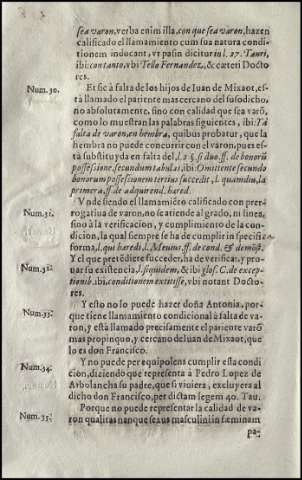 sea varon, verba enim illa, con que sea varon, hazen
calificado el llamamiento cum sua natura condi-
tionem inducant, vt passin dicitur in l. 27. Tauri,
ibi: cantanto, vbi Tello Fernandez, & cæteri Docto
res.
Num. 30. Et si è à falta de los hijos de Iuan de Mixaot, es-
tà llamado el pariente mas cercano del susodicho,
no absolutamente, sino con calidad que sea varō,
como lo muestran las palabras siguientes, ibi: Ya
falta de varon, en hembra, quibus probatur, que la
hembra no puede concurrir con el varon, pues es-
tà substituyda en falta del, l. 2. §. si duo, ff. de bonorū
possessione, secundum tabulas, ibi: Omittente secundo
bonorum possessionem tertius succedit, l. quamdiu, la
primera, ff. de adquirend. hæred.
Num. 31. Vnde siendo el llamamiēto calificado con prer-
rogatiua de varon, no se atiende al grado, ni lineas,
sino à la verificacion, y cumplimiento de la con-
dicion, la qual siempre se ha de cumplir in specifica
forma, l. qui hæredi, l. Mæuius, ff. de cond. & demōst.
Num. 32. Y el que pretēdiere succeder, ha de verificar, y pro-
uar su existencia, l. siquidem, & ibi glos. C. de excep-
tionib. ibi: conditionem extitisse, vbi notant Docto-
res.
Num. 33. Y esto no lo puede hazer doña Antonia, por-
que tiene llamamiento condicional à falta de va-
ron, y està llamado precisamente el pariente varō
mas propinquo, y cercano del uan de Mixaot, que
lo es don Francisco.
Num. 34. Y no puede per equipolens cumplir esta condi
cion, diziendo que representa à Pedro Lopez de
Arbolancha su padre, que si viuiera, excluyera al
dicho don Francisco, per dictam legem 40. Tau.
Num. 35. Porque no puede representar la calidad de va-
ron qualitas nanque sexus masculini in fæminam
pa-